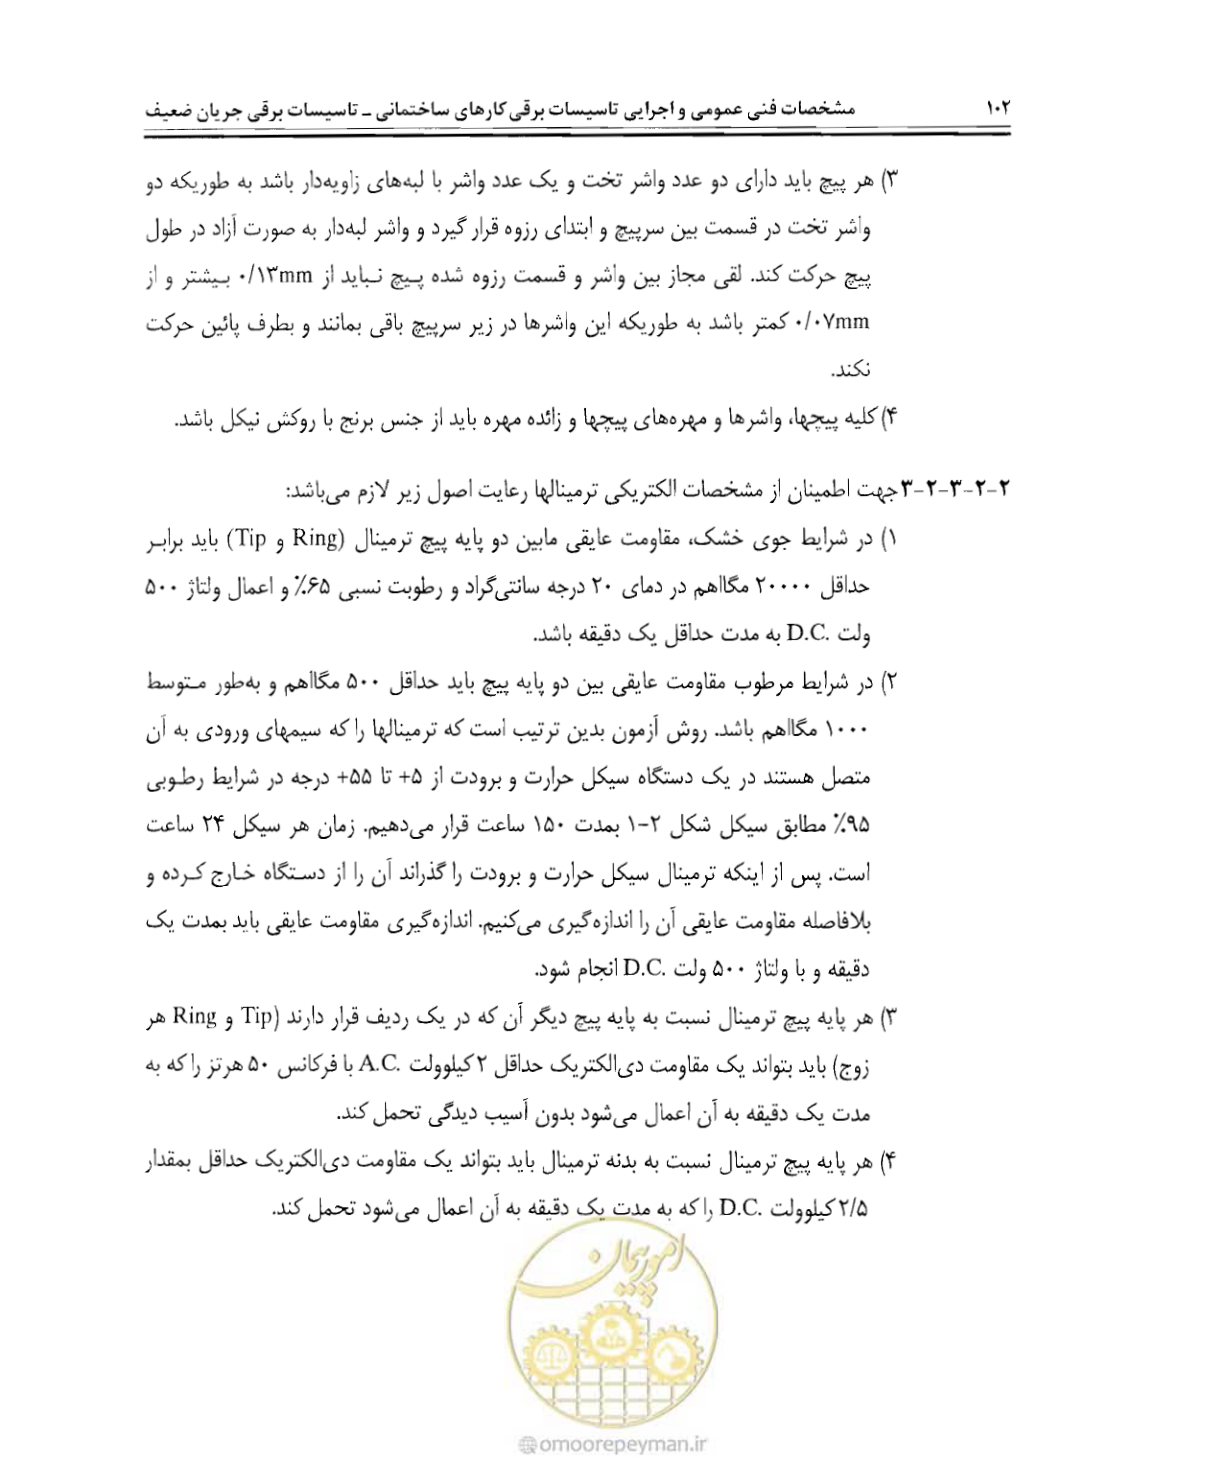 ۱۰۲ مشخصات فنی عمومی و اجرایی تاسیسات برقی کارهای ساختمانی ـ تاسیسات برقی جریان ضعیف
۳) هر پیچ باید دارای دو عدد واشر تخت و یک عدد واشر با لبه‌های زاویه‌دار باشد به طوریکه دو
واشر تخت در قسمت بین سرپیچ و ابتدای رزوه قرار گیرد و واشر لبه‌دار به صورت آزاد در طول
پیچ حرکت کند. لقی مجاز بین واشر و قسمت رزوه شده پیچ نباید از ۰/۱۳mm بیشتر و از
۰/۰۷mm کمتر باشد به طوریکه این واشرها در زیر سرپیچ باقی بمانند و بطرف پائین حرکت
نکند.
۴) کلیه پیچها، واشرها و مهره‌های پیچها و زائده مهره باید از جنس برنج با روکش نیکل باشد.
۲-۲-۳-۲-۳ جهت اطمینان از مشخصات الکتریکی ترمینالها رعایت اصول زیر لازم می‌باشد:
۱) در شرایط جوی خشک، مقاومت عایقی مابین دو پایه پیچ ترمینال (Ring و Tip) باید برابر
حداقل ۲۰۰۰۰ مگااهم در دمای ۲۰ درجه سانتی‌گراد و رطوبت نسبی ۶۵٪ و اعمال ولتاژ ۵۰۰
ولت D.C. به مدت حداقل یک دقیقه باشد.
۲) در شرایط مرطوب مقاومت عایقی بین دو پایه پیچ باید حداقل ۵۰۰ مگااهم و به‌طور متوسط
۱۰۰۰ مگااهم باشد. روش آزمون بدین ترتیب است که ترمینالها را که سیمهای ورودی به آن
متصل هستند در یک دستگاه سیکل حرارت و برودت از ۵+ تا ۵۵+ درجه در شرایط رطوبی
۹۵٪ مطابق سیکل شکل ۲-۱ بمدت ۱۵۰ ساعت قرار می‌دهیم. زمان هر سیکل ۲۴ ساعت
است. پس از اینکه ترمینال سیکل حرارت و برودت را گذراند آن را از دستگاه خارج کرده و
بلافاصله مقاومت عایقی آن را اندازه‌گیری می‌کنیم. اندازه‌گیری مقاومت عایقی باید بمدت یک
دقیقه و با ولتاژ ۵۰۰ ولت D.C. انجام شود.
۳) هر پایه پیچ ترمینال نسبت به پایه پیچ دیگر آن که در یک ردیف قرار دارند (Tip و Ring هر
زوج) باید بتواند یک مقاومت دی‌الکتریک حداقل ۲ کیلوولت A.C. با فرکانس ۵۰ هرتز را که به
مدت یک دقیقه به آن اعمال می‌شود بدون آسیب دیدگی تحمل کند.
۴) هر پایه پیچ ترمینال نسبت به بدنه ترمینال باید بتواند یک مقاومت دی‌الکتریک حداقل بمقدار
۲/۵ کیلوولت D.C. را که به مدت یک دقیقه به آن اعمال می‌شود تحمل کند.
امور پیمان
omoorepeyman.ir